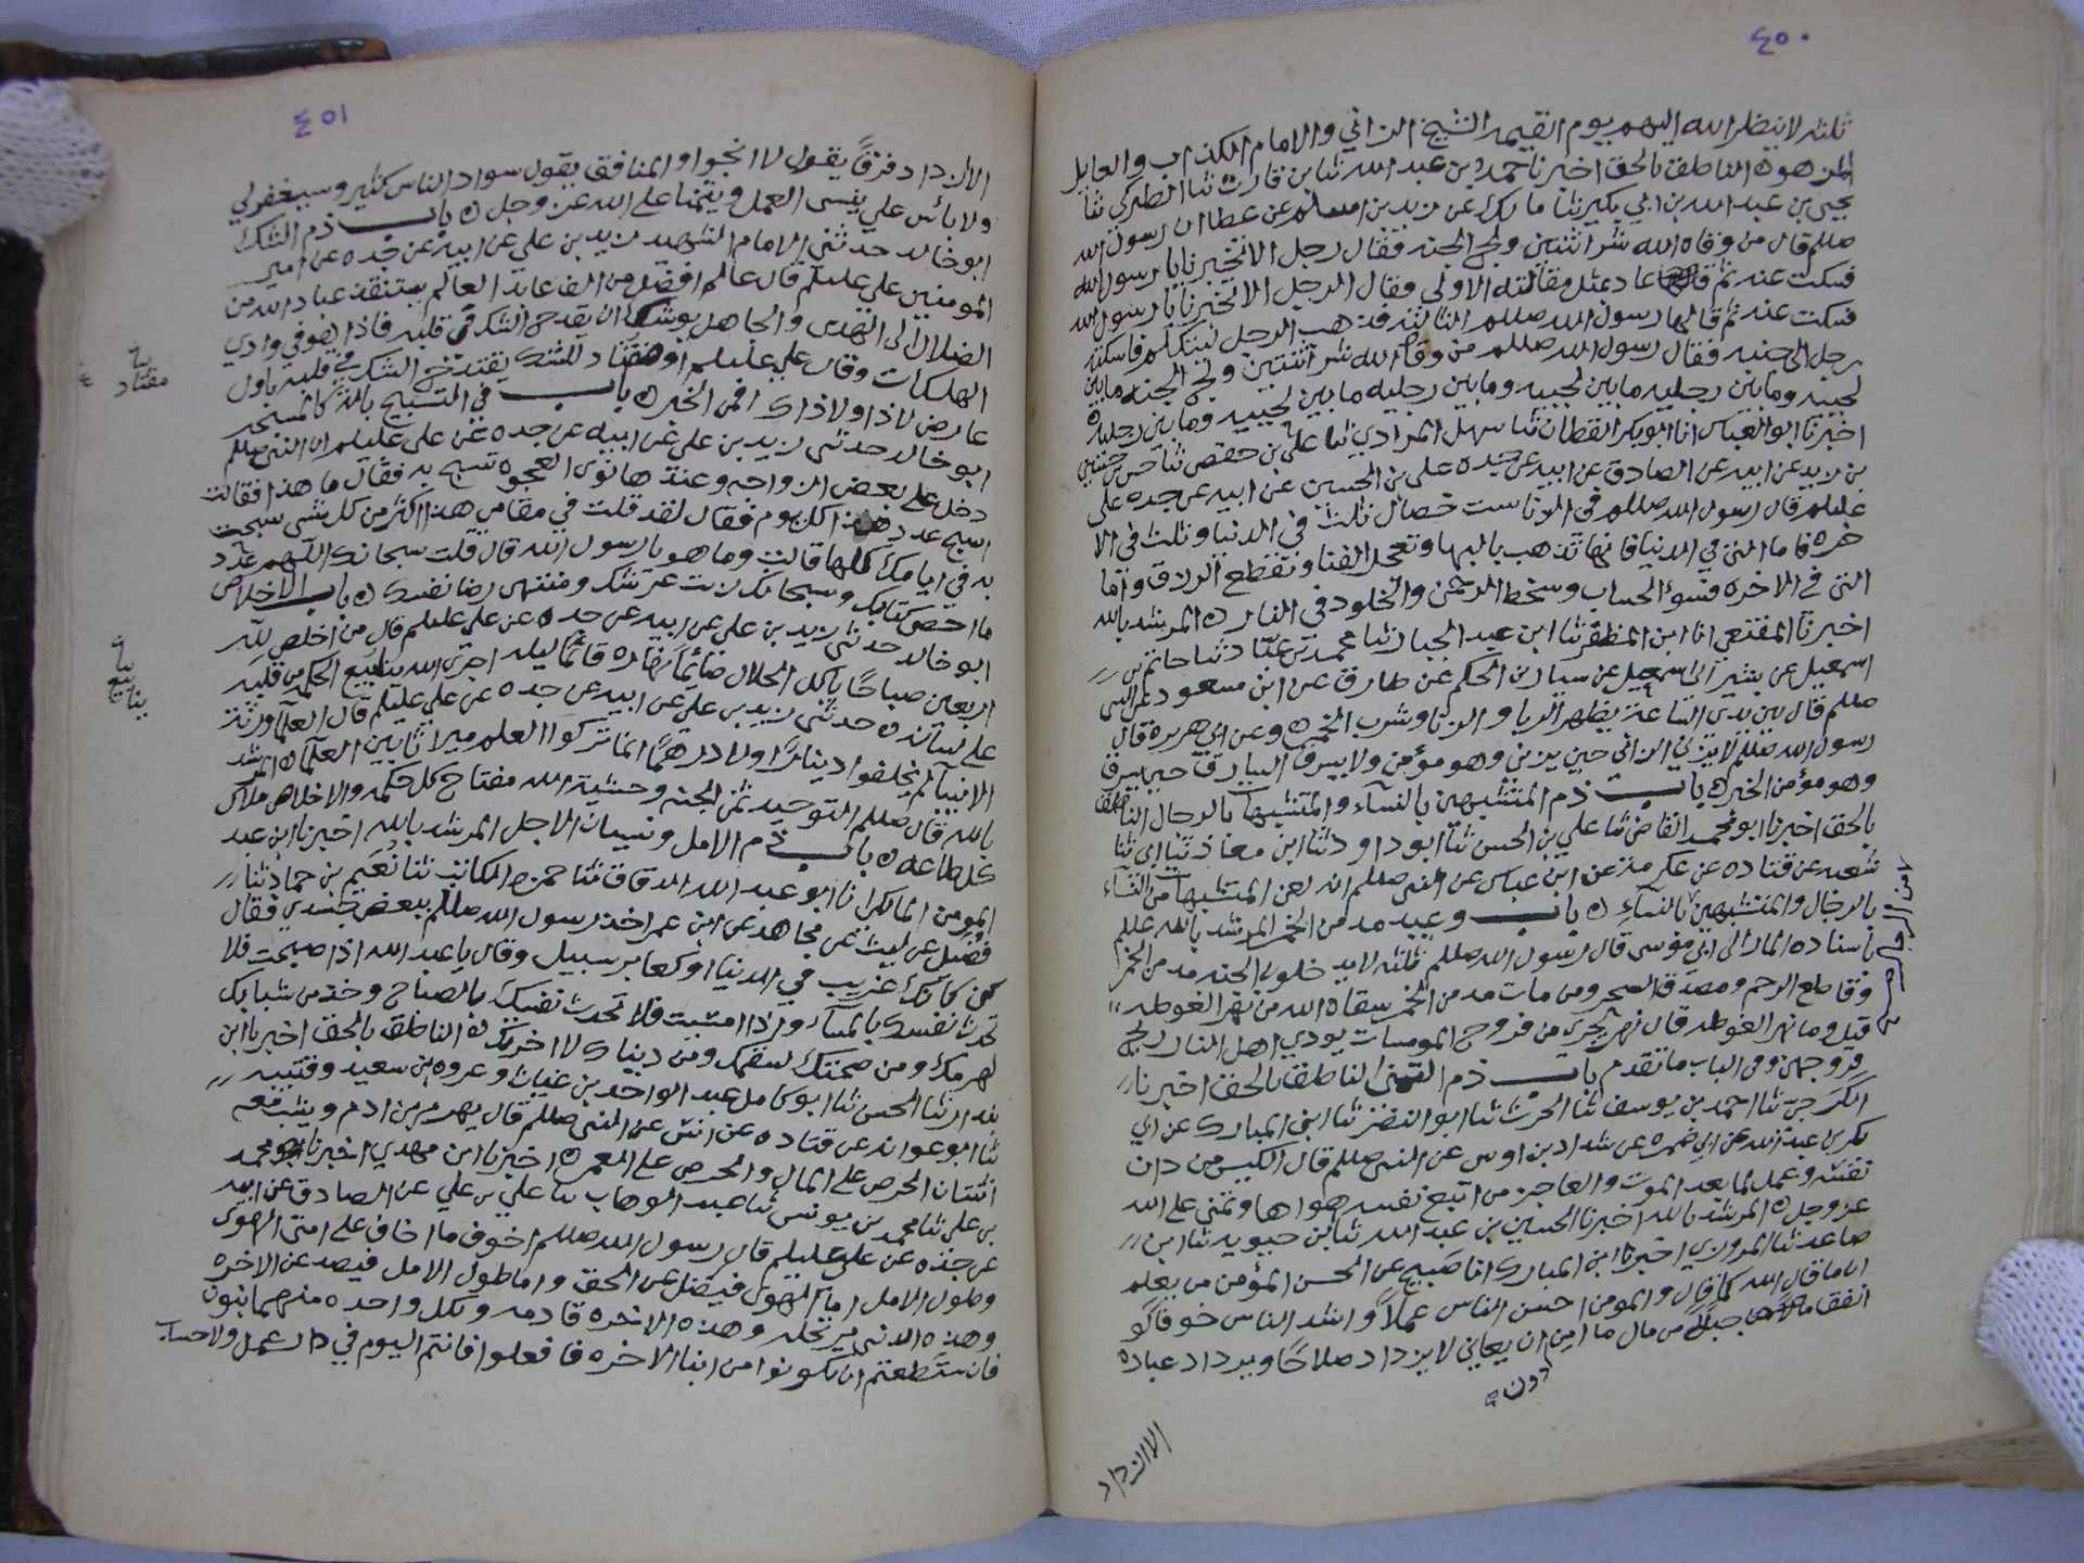 ٤٥٠
ثلثه لا ينظر الله اليهم يوم القيمه الشيخ الزاني والامام الكذاب والعايل
المزهوه الناطق بالحق اخبرنا حمد بن عبد الله ثنا بن قارن ثنا الطبركي ثنا
يحيى بن عبد الله بن ابي بكير ثنا مالك عن زيد بن اسلم عن عطا ان رسول الله
صللم قال من وقاه الله شر اثنتين ولج الجنه فقال رجل الا تخبرنا يا رسول الله
فسكت عنه ثم عاد مثل مقالته الاولى وقال الرجل الا تخبرنا يا رسول الله
فسكت عنه ثم قالها رسول الله صللم الثالثه فذهب الرجل ليتكلم فاسكته
رجل الى جنبه فقال رسول الله صللم من وقاه الله شر اثنتين ولج الجنه مابين
لحييه ومابين رجليه مابين لحييه ومابين رجليه مابين لحييه ومابين رجليه
اخبرنا ابو العباس انا ابو بكر القطان ثنا سهل المرادي ثنا علي بن حفص ثنا حسن
بن زيد عن ابيه عن الصادق عن ابيه عن جده علي بن الحسين عن ابيه عن جده علي
عليلم قال رسول الله صللم في الزنا ست خصال ثلث في الدنيا وثلث في الا
خره فاما التي في الدنيا فانها تذهب بالبها وتعجل الفنا وتقطع الرزق واما
التي في الاخره فسوء الحساب وسخط الرحمن والخلود في النار ه المرشد بالله
اخبرنا المقنعي انا ابن المظفر ثنا ابن عبد الجبار ثنا محمد بن عباد ثنا حاتم بن
اسمعيل عن بشير ابي اسمعيل عن سيار بن الحكم عن طارق عن ابن مسعود عن النبي
صللم قال بين يدي الساعة يظهر الربا والزنا وشرب الخمر ه وعن ابي هريره قال
رسول الله صللم لا يزني الزاني حين يزني وهو مؤمن ولا يسرق السارق حين يسرق
وهو مؤمن الخبر ه باب ذم المتشبهين بالنساء والمتشبهات بالرجال الناطق
بالحق اخبرنا ابو محمد القاضي ثنا علي بن الحسن ثنا ابو داود ثنا ابن معاذ ثنا ابي ثنا
شعبه عن قتاده عن عكرمة عن ابن عباس عن النبي صللم انه لعن المتشبهات من النساء
بالرجال والمتشبهين بالنساء ه باب وعيد مدمن الخمر المرشد بالله عللم
باسناده المار الى ابي موسى قال رسول الله صللم ثلثه لا يدخلون الجنه مدمن الخمر
وقاطع الرحم ومصدق السحر ومن مات مدمن الخمر سقاه الله من نهر الغوطه
قيل وما نهر الغوطه قال نهر يجري من فروج المومسات يوذي اهل النار ريح
فروجهن وفي الباب ما تقدم باب ذم التمني الناطق بالحق اخبرنا
الكرجي ثنا احمد بن يوسف ثنا الحرث ثنا ابو النضر ثنا ابن المبارك عن ابي
بكر بن عبد الله عن ابي ضمره عن شداد بن اوس عن النبي صللم قال الكيس من دان
نفسه وعمل لما بعد الموت والعاجز من اتبع نفسه هواها وتمنى على الله
عز وجل ه المرشد بالله اخبرنا الحسين بن عبد الله ثنا ابن حبويه ثنا ابن
صاعد ثنا المروزي اخبرنا ابن المبارك انا صبيح عن الحسن المؤمن من يعلم
ان ما قال الله كما قال والمومن احسن الناس عملا واشد الناس خوفا لو
انفق جبلا من مال ما امن ان يعاني لا يزداد صلاحا وبردا وعباده
دون
الا ازداد
٤٥١
الا ازداد فرقا يقول لا انجوا والمنافق يقول سواد الناس كثير وسيغفر لي
ولا بأس علي ينسى العمل ويتمنا على الله عز وجل ه باب ذم الشك
ابو خالد حدثني الامام الشهيد زيد بن علي عن ابيه عن جده عن امير
المومنين علي عليلم قال عالم افضل من الف عابد العالم يستنقذ عباد الله من
الضلال الى الهدى والجاهل يوشك ان يقدح الشك في قلبه فاذا هو في وادي
الهلكات وقال علي عليلم او منقاد للشك يقتدح الشك في قلبه باول
عارض لا ذا ولا ذاك افمن الخبر ه باب في التسبيح
ابو خالد حدثني زيد بن علي عن ابيه عن جده عن علي عليلم ان النبي صللم
دخل على بعض ازواجه وعندها نوى العجوه تسبح به فقال ما هذا فقالت
اسبح عدد هذا كل يوم فقال لقد قلت في مقامي هذا اكثر من كل شي سبحت
به في ايامك كلها قالت وما هو يا رسول الله قال قلت سبحانك اللهم عدد
ما احصى كتابك وسبحانك زنت عرشك ومنتهى رضا نفسك ه باب الاخلاص
ابو خالد حدثني زيد بن علي عن ابيه عن جده عن علي عليلم قال من اخلص لله
اربعين صباحا ياكل الحلال صائما نهاره قائما ليله اجرى الله ينابيع الحكم من قلبه
على لسانه ه حدثني زيد بن علي عن ابيه عن جده عن علي عليلم قال العلما ورثة
الانبيا لم يخلفوا دينارا ولا درهما انما تركوا العلم ميراثا بين العلما ه المرشد
بالله قال صللم التوحيد ثمن الجنه وخشية الله مفتاح كل حكمه والاخلاص ملاك
كل طاعه ه باب ذم الامل ونسيان الاجل المرشد بالله اخبرنا ابن عبد
المومن المالكي انا ابو عبد الله الدقاق ثنا حمزه الكاتب ثنا نعيم بن حماد ثنا
فضيل عن ليث عن مجاهد عن ابن عمر اخذ رسول الله صللم ببعض جسدي فقال
كن كانك غريب في الدنيا او كعابر سبيل وقال يا عبد الله اذا صبحت فلا
تحدث نفسك بالمساء واذا امسيت فلا تحدث نفسك بالصباح وخذ من شبابك
لهرمك ومن صحتك لسقمك ومن دنياك لاخرتك ه الناطق بالحق اخبرنا ابن
بندار ثنا الحسن ثنا ابو كامل عبد الواحد بن غياث وعروه بن سعيد وقتيبه
ثنا ابو عوانه عن قتاده عن انس عن النبي صللم قال يهرم بن ادم ويشب معه
اثنتان الحرص على المال والحرص على العمر ه اخبرنا ابن مهدي اخبرنا ابو محمد
بن علي ثنا محمد بن يونس ثنا عبد الوهاب ثنا علي بن علي عن الصادق عن ابيه
عن جده عن علي عليلم قال رسول الله صللم اخوف ما اخاف على امتي الهوى
وطول الامل اما الهوى فيضل عن الحق واما طول الامل فيصد عن الاخره
وهذه الدنيا مرتحله وهذه الاخره قادمه ولكل واحده منهما بنون
فان ستطعتم ان تكونوا من ابنا الاخره فافعلوا فانتم اليوم في دار عمل ولا حساب
منقاد
ينابيع